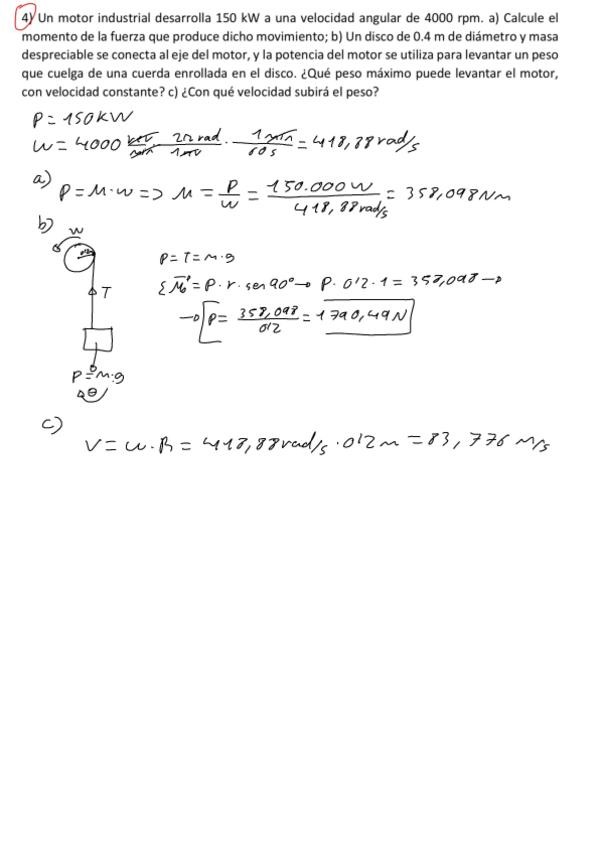 4) Un motor industrial desarrolla 150 kW a una velocidad angular de 4000 rpm. a) Calcule el
momento de la fuerza que produce dicho movimiento; b) Un disco de 0.4 m de diámetro y masa
despreciable se conecta al eje del motor, y la potencia del motor se utiliza para levantar un peso
que cuelga de una cuerda enrollada en el disco. ¿Qué peso máximo puede levantar el motor,
con velocidad constante? c) ¿Con qué velocidad subirá el peso?
P = 150KW
W = 4000 rev/min · 2π rad/1 rev · 1 min/60 s = 418,88 rad/s
a)
P = M·w => M = P/W = 150.000 W/418,88 rad/s = 358,098 Nm
b)
W
T
P = m·g
P = T = m·g
ΣM₀ = P·r·sen 90° → P·0'2·1 = 358,098 →
→ P = 358,098/0'2 = 1790,49 N
c)
V = w·R = 418,88 rad/s · 0'2 m = 83,776 m/s